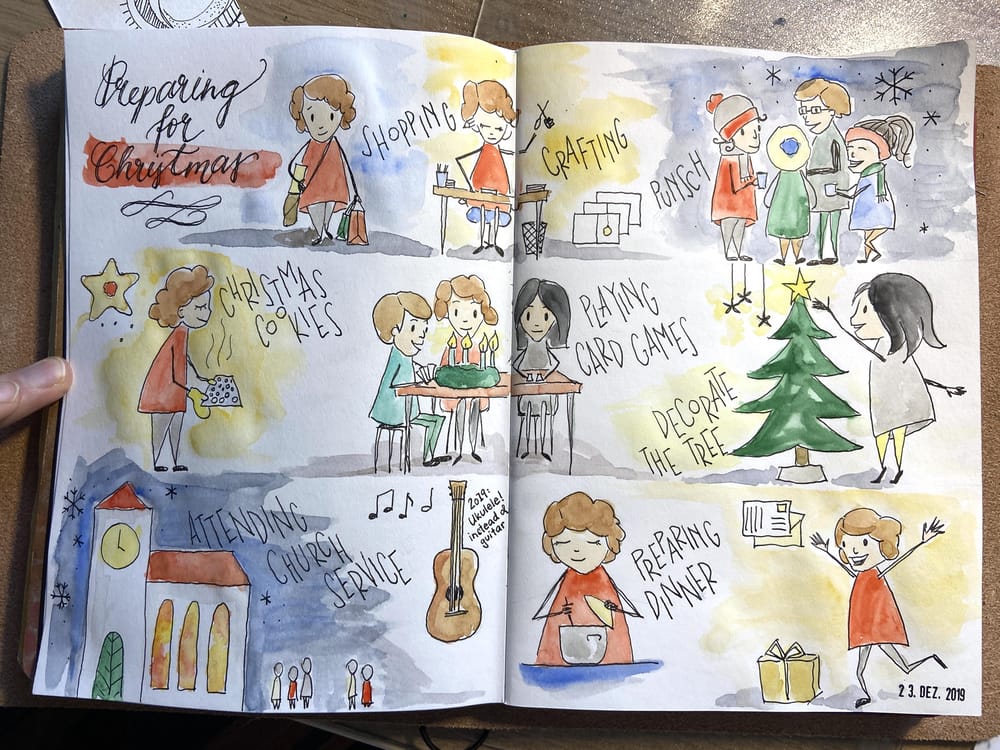 Preparing
for
Christmas
SHOPPING
CRAFTING
PUNSCH
CHRISTMAS
COOKIES
PLAYING
CARD GAMES
DECORATE
THE TREE
ATTENDING
CHURCH
SERVICE
2019:
Ukulele!
instead of
guitar
PREPARING
DINNER
23. DEZ. 2019